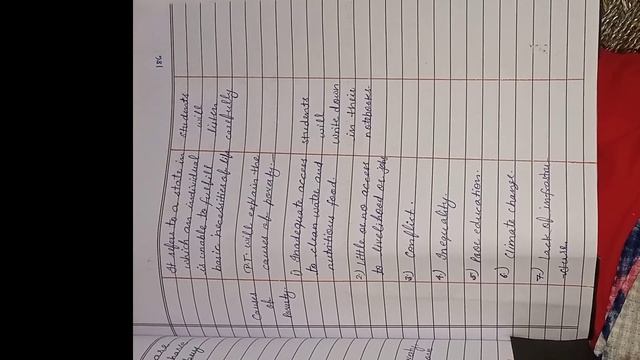 186
It refers to a state in
which an individual
is unable to fulfill
basic necessities of life
Students
will
listen
carefully
Causes
of
Poverty:
P.T. will explain the
causes of poverty.
1) Inadequate access
to clean water and
nutritious food.
2) Little or no access
to livelihood or job
3) Conflict.
4) Inequality.
5) Poor education.
6) Climate change.
7) Lack of infrastr
ucture.
students
will
write down
in their
notebooks.
are